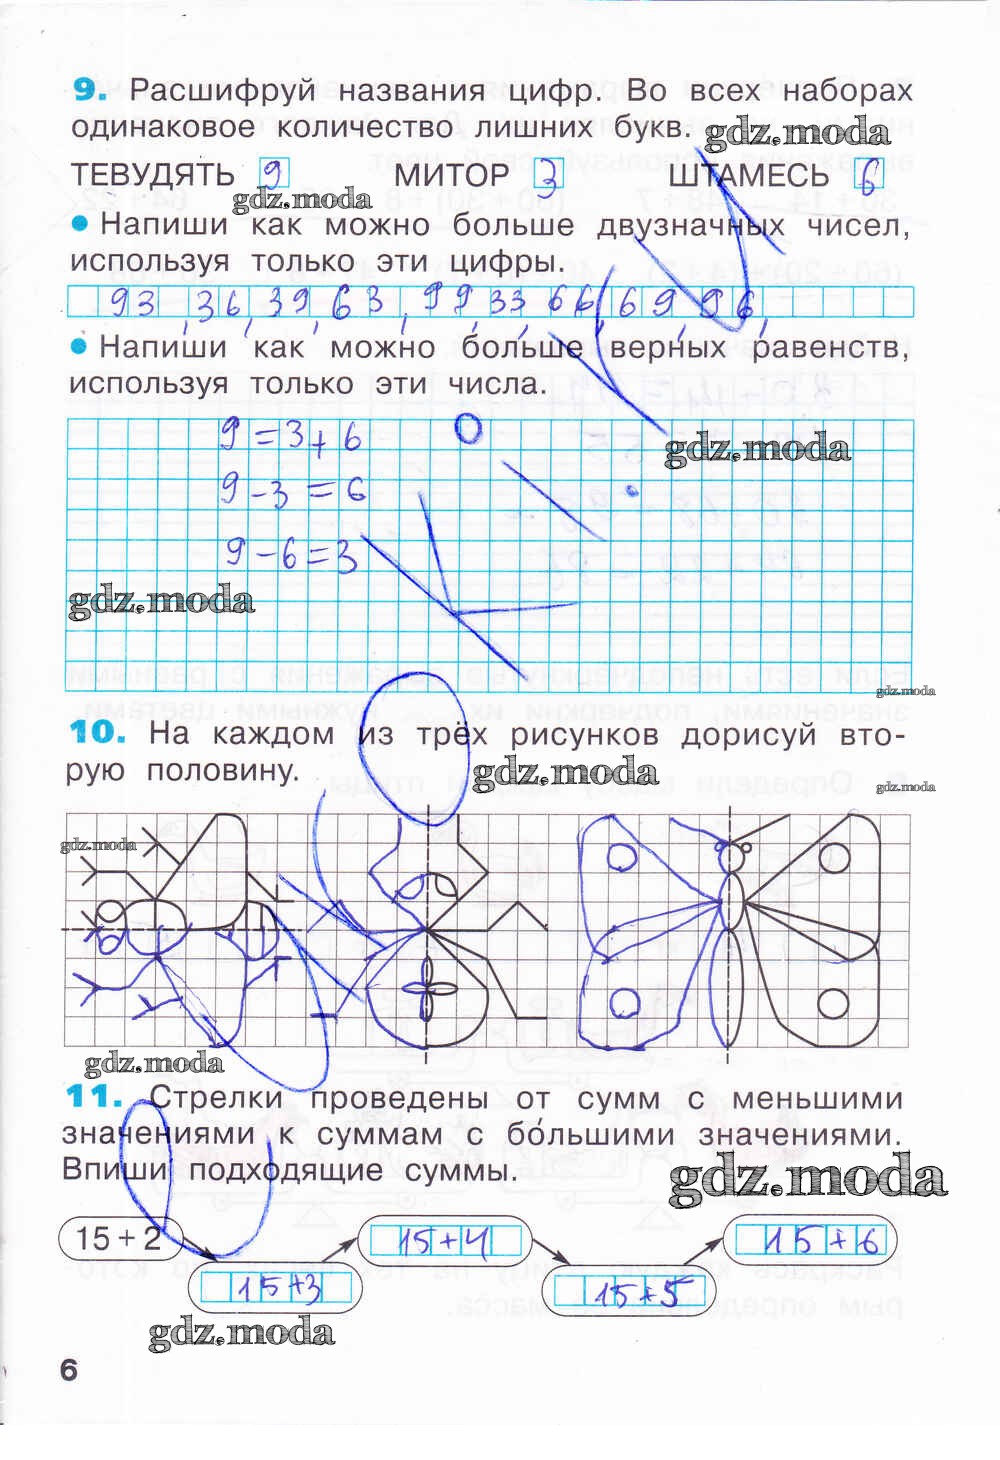 9. Расшифруй названия цифр. Во всех наборах
одинаковое количество лишних букв. gdz.moda
ТЕВУДЯТЬ 9 МИТОР 3 ШТАМЕСЬ 6
gdz.moda
• Напиши как можно больше двузначных чисел,
используя только эти цифры.
93, 36, 39, 63, 99, 33, 66, 69, 96,
• Напиши как можно больше верных равенств,
используя только эти числа.
9 = 3 + 6
gdz.moda
9 - 3 = 6
9 - 6 = 3
gdz.moda
gdz.moda
10. На каждом из трёх рисунков дорисуй вто-
рую половину.
gdz.moda
gdz.moda
gdz.moda
gdz.moda
11. Стрелки проведены от сумм с меньшими
значениями к суммам с бо́льшими значениями.
Впиши подходящие суммы.
gdz.moda
15 + 2 15+4 15+6
15+3 15+5
gdz.moda
6